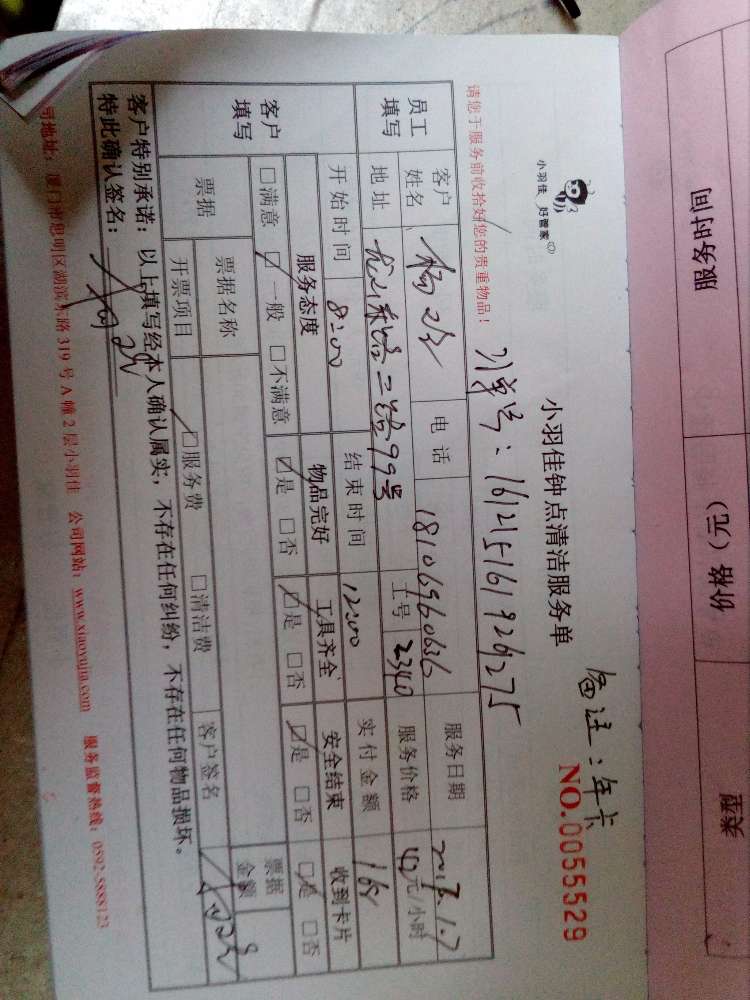 服务时间 价格（元） 类型
备注：年卡
小羽佳 好管家
小羽佳钟点清洁服务单 NO.0055529
订单号：161215161926275
请您于服务前收拾好您的贵重物品！
员工填写 客户姓名 电话 18106960636 服务日期 2017.1.7
地址 二路99号 工号 2340 服务价格 42元/小时
开始时间 8:00 结束时间 12:00 实付金额 168
客户填写 服务态度 物品完好 工具齐全 安全结束 收到卡片
□满意 □一般 □不满意 □是 □否 □是 □否 □是 □否 □是 □否
票据 票据名称 票据金额
开票项目 □服务费 □清洁费 客户签名
客户特别承诺：以上填写经本人确认属实，不存在任何纠纷，不存在任何物品损坏。
特此确认签名：
司地址：厦门市思明区湖滨东路319号A幢2层小羽佳 公司网站：www.xiaoyujia.com 服务监督热线：0592-5888123